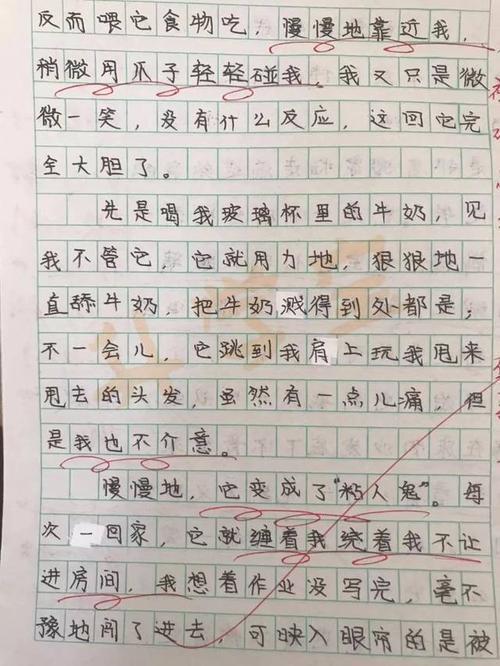 反而喂它食物吃，慢慢地靠近我，
稍微用爪子轻轻碰我。我又只是微
微一笑，没有什么反应，这回它完
全大胆了。
先是喝我玻璃杯里的牛奶，见
我不管它，它就用力地，狠狠地一
直舔牛奶，把牛奶溅得到处都是；
不一会儿，它跳到我肩上玩我甩来
甩去的头发，虽然有一点儿痛，但
是我也不介意。
慢慢地，它变成了“粘人鬼”。每
次一回家，它就缠着我绕着我不让
进房间，我想着作业没写完，毫不
豫地闯了进去，可映入眼帘的是被